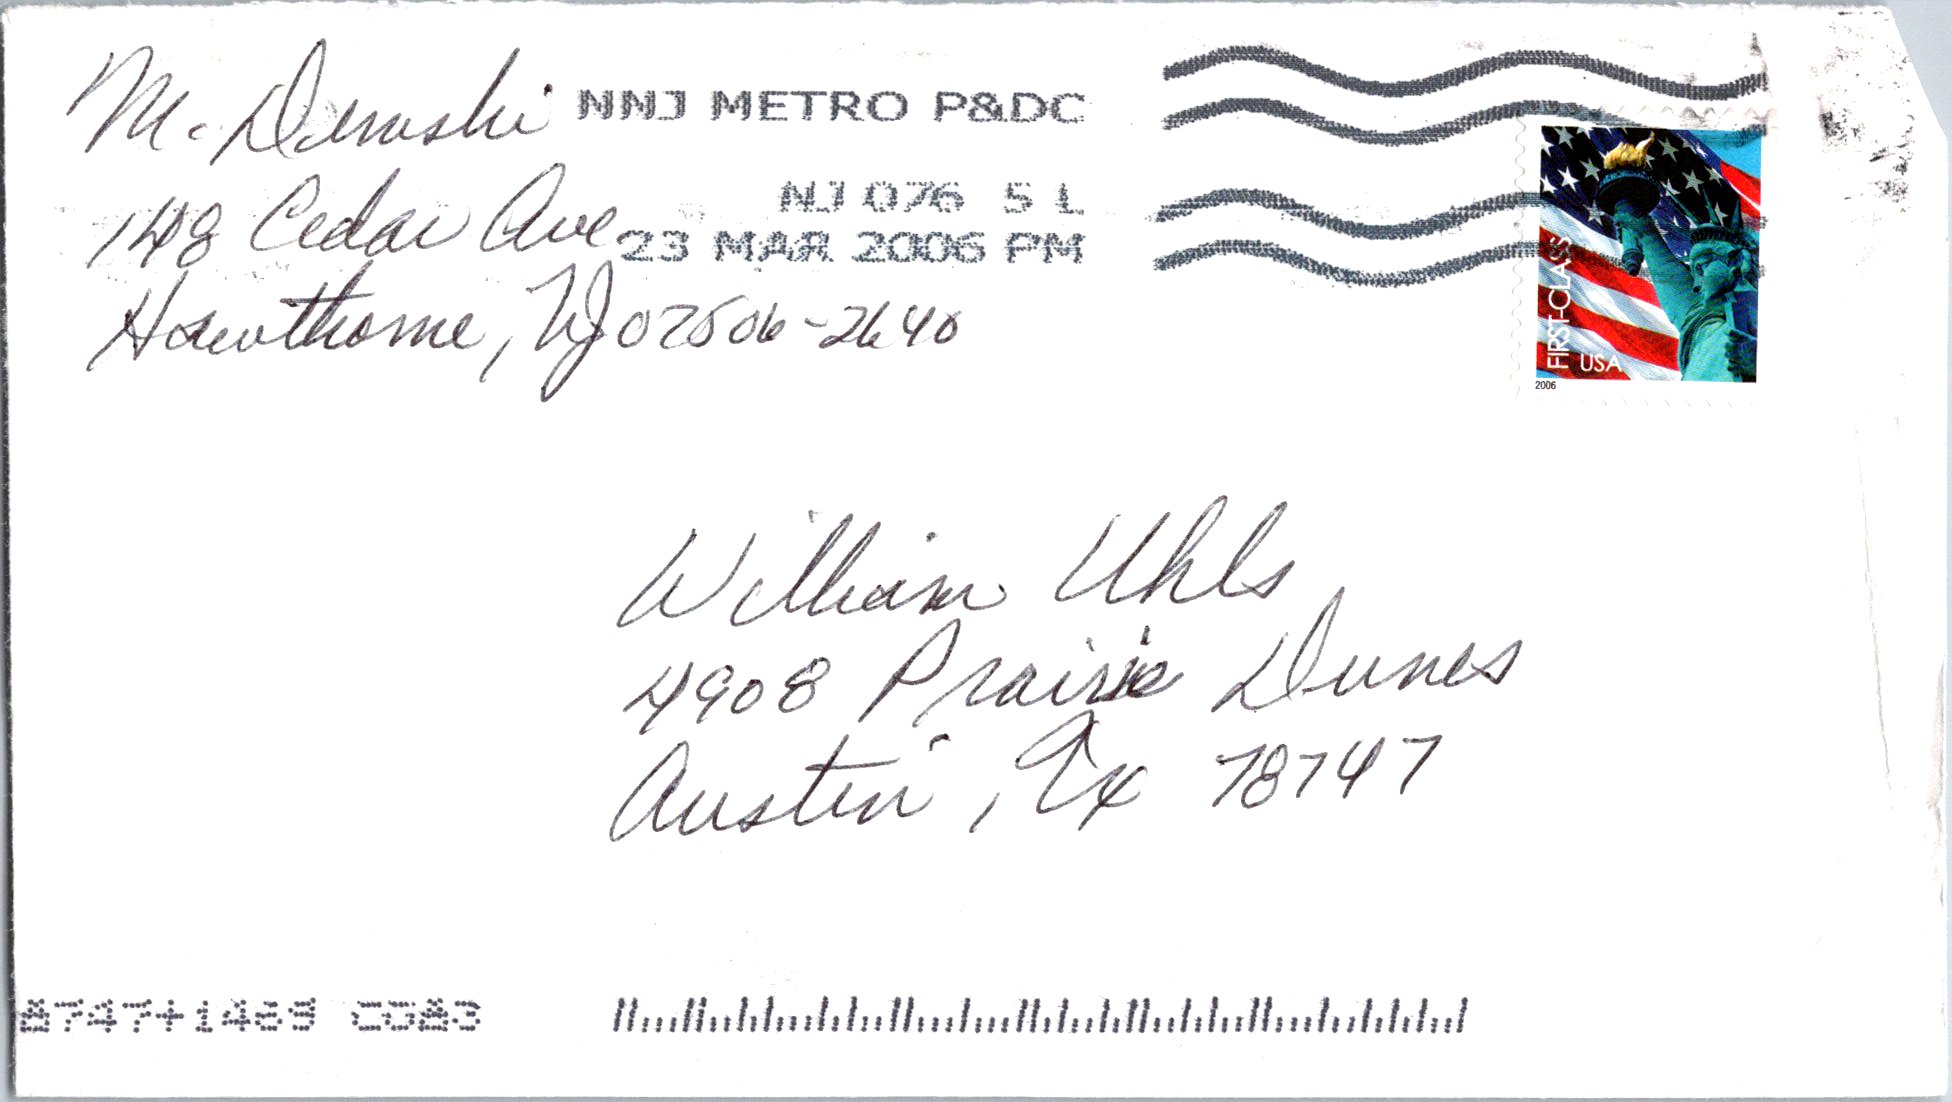 M. Demski
148 Cedar Ave
Hawthorne, NJ 07506-2640
NNJ METRO P&DC
NJ 076 5 L
23 MAR 2006 PM
FIRST-CLASS
USA
2006
William Uhls
4908 Prairie Dunes
Austin, Tx 78747